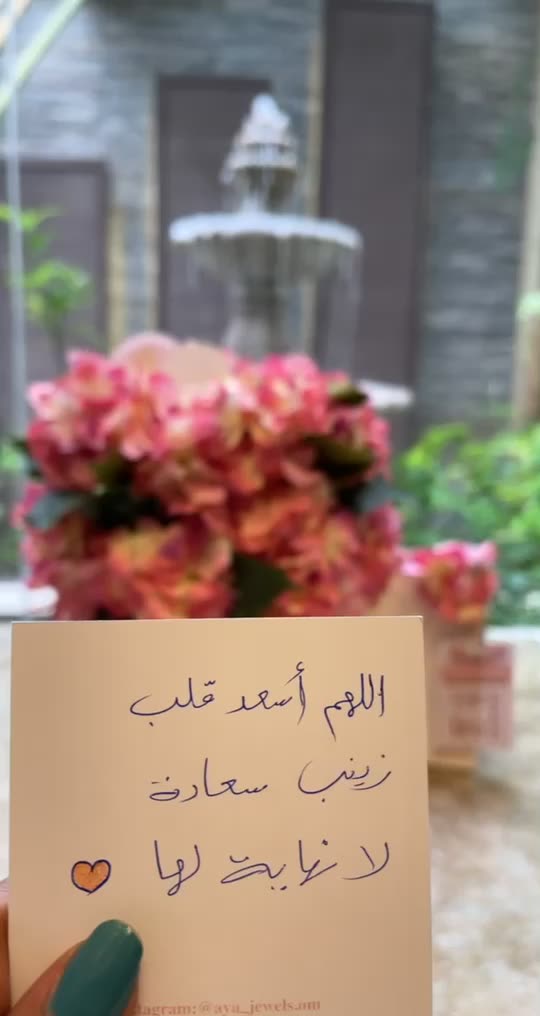 اللهم أسعد قلب
زينب سعادة
لا نهاية لها
Instagram:@aya_jewels.om